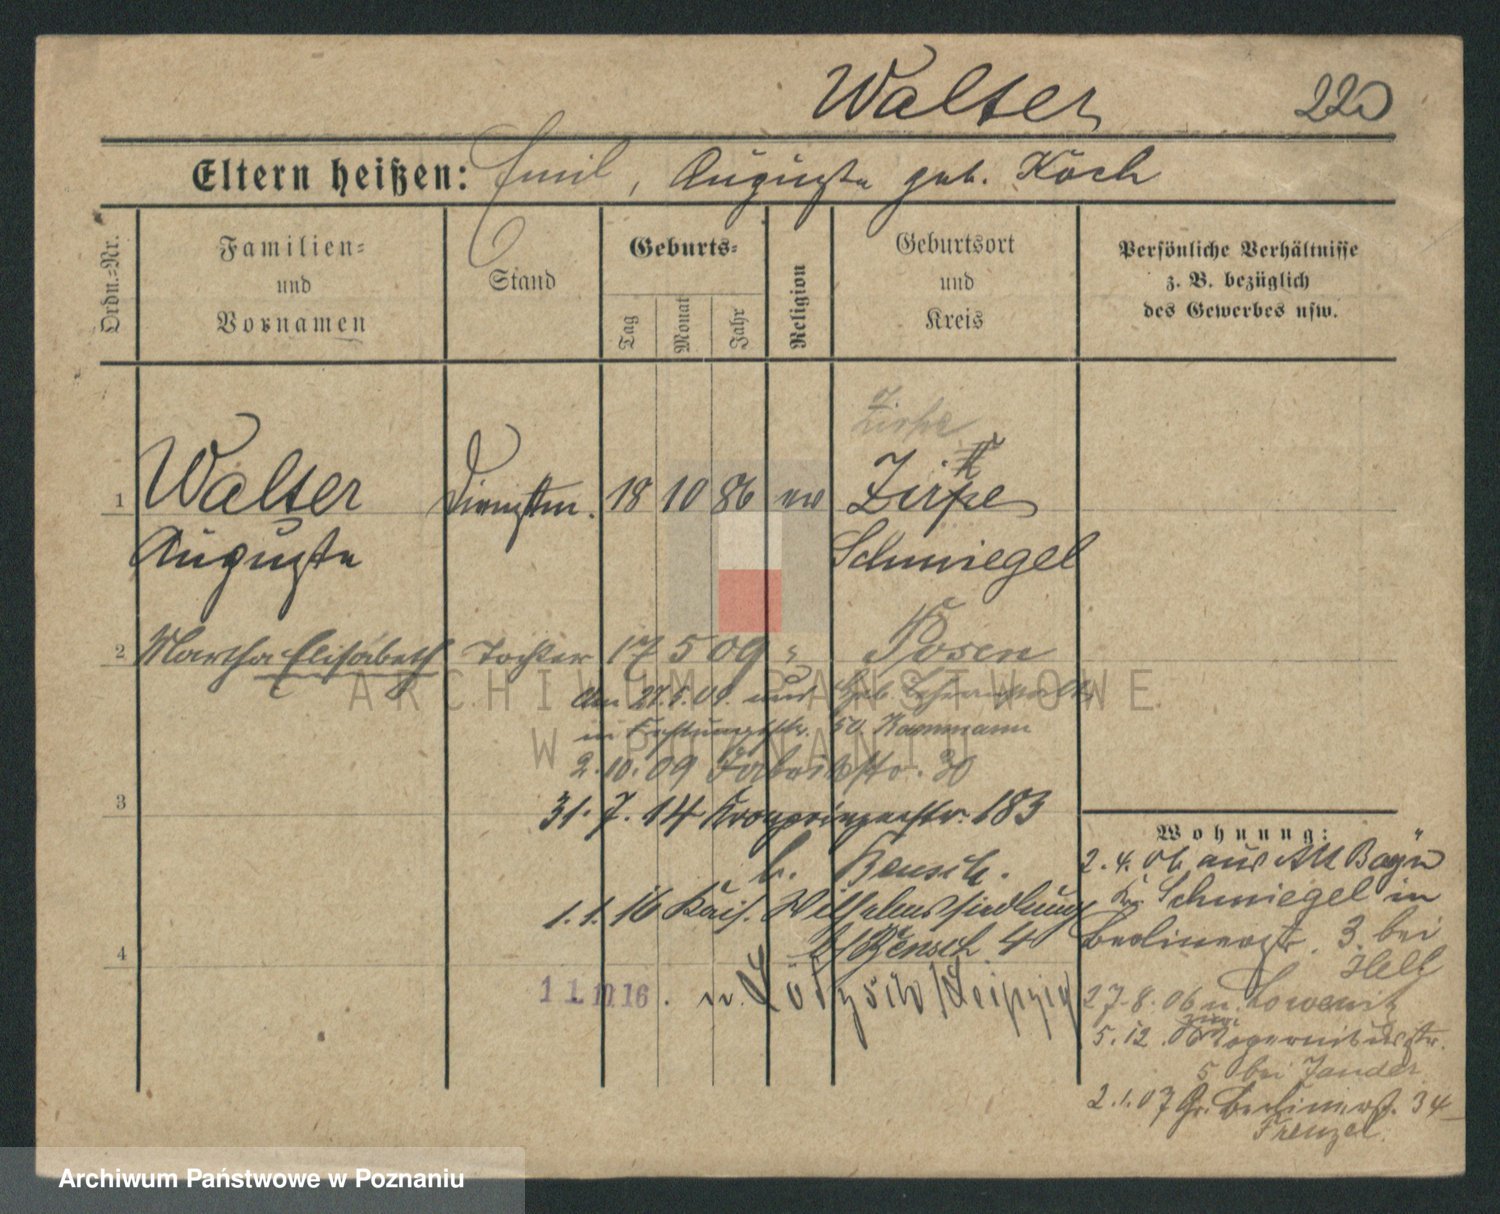 Walter 220
Eltern heißen: Emil, Auguste geb. Koch
Ordn.=Nr.
Familien=
und
Vornamen
Stand
Geburts=
Tag
Monat
Jahr
Religion
Geburtsort
und
Kreis
Persönliche Verhältnisse
z. B. bezüglich
des Gewerbes usw.
Zirke
1 Walter Dienstm. 18 10 86 ev Zirke
Auguste Schmiegel
2 Martha Elisabeth Tochter 17 5 09 " Posen
ARCHIWUM PAŃSTWOWE
W POZNANIU
am 27.5.09. und Geb.
in 50. Kammann
2.10.09 Fabrikstr. 30
3
31.7.14 Kronprinzenstr. 183
b. Bensch.
1.1.16 Kais. Wilhelmssiedlung
b/Bensch 4
4
11.11.16. n. Leipzig
Wohnung:
2.4.06 aus Alt
Kr. Schmiegel in
Berlinerstr. 3 bei
27.8.06 n.
5.12.06
5 bei Jander
2.1.07 Gr. Berlinerst. 34
Frenzel.
Archiwum Państwowe w Poznaniu